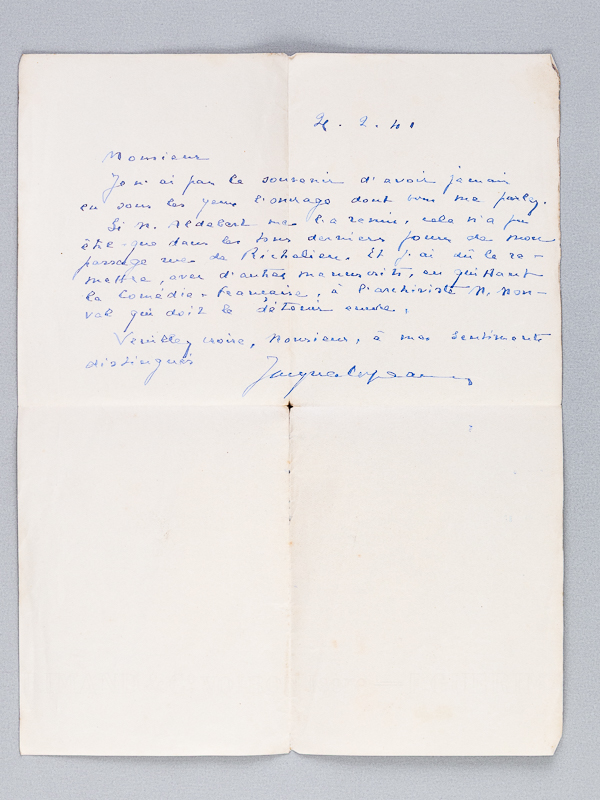 2. 41
Monsieur
Je n'ai pas le souvenir d'avoir jamais
eu sous les yeux l'ouvrage dont vous me parlez.
Si M. Aldebert me l'a remis, cela n'a pu
être que dans les tous derniers jours de mon
passage rue de Richelieu. Et j'ai dû le re-
mettre, avec d'autres manuscrits, en quittant
la Comédie-Française, à l'archiviste M. Mon-
val qui doit le détenir encore.
Veuillez croire, Monsieur, à mes sentiments
distingués
Jacques Copeau